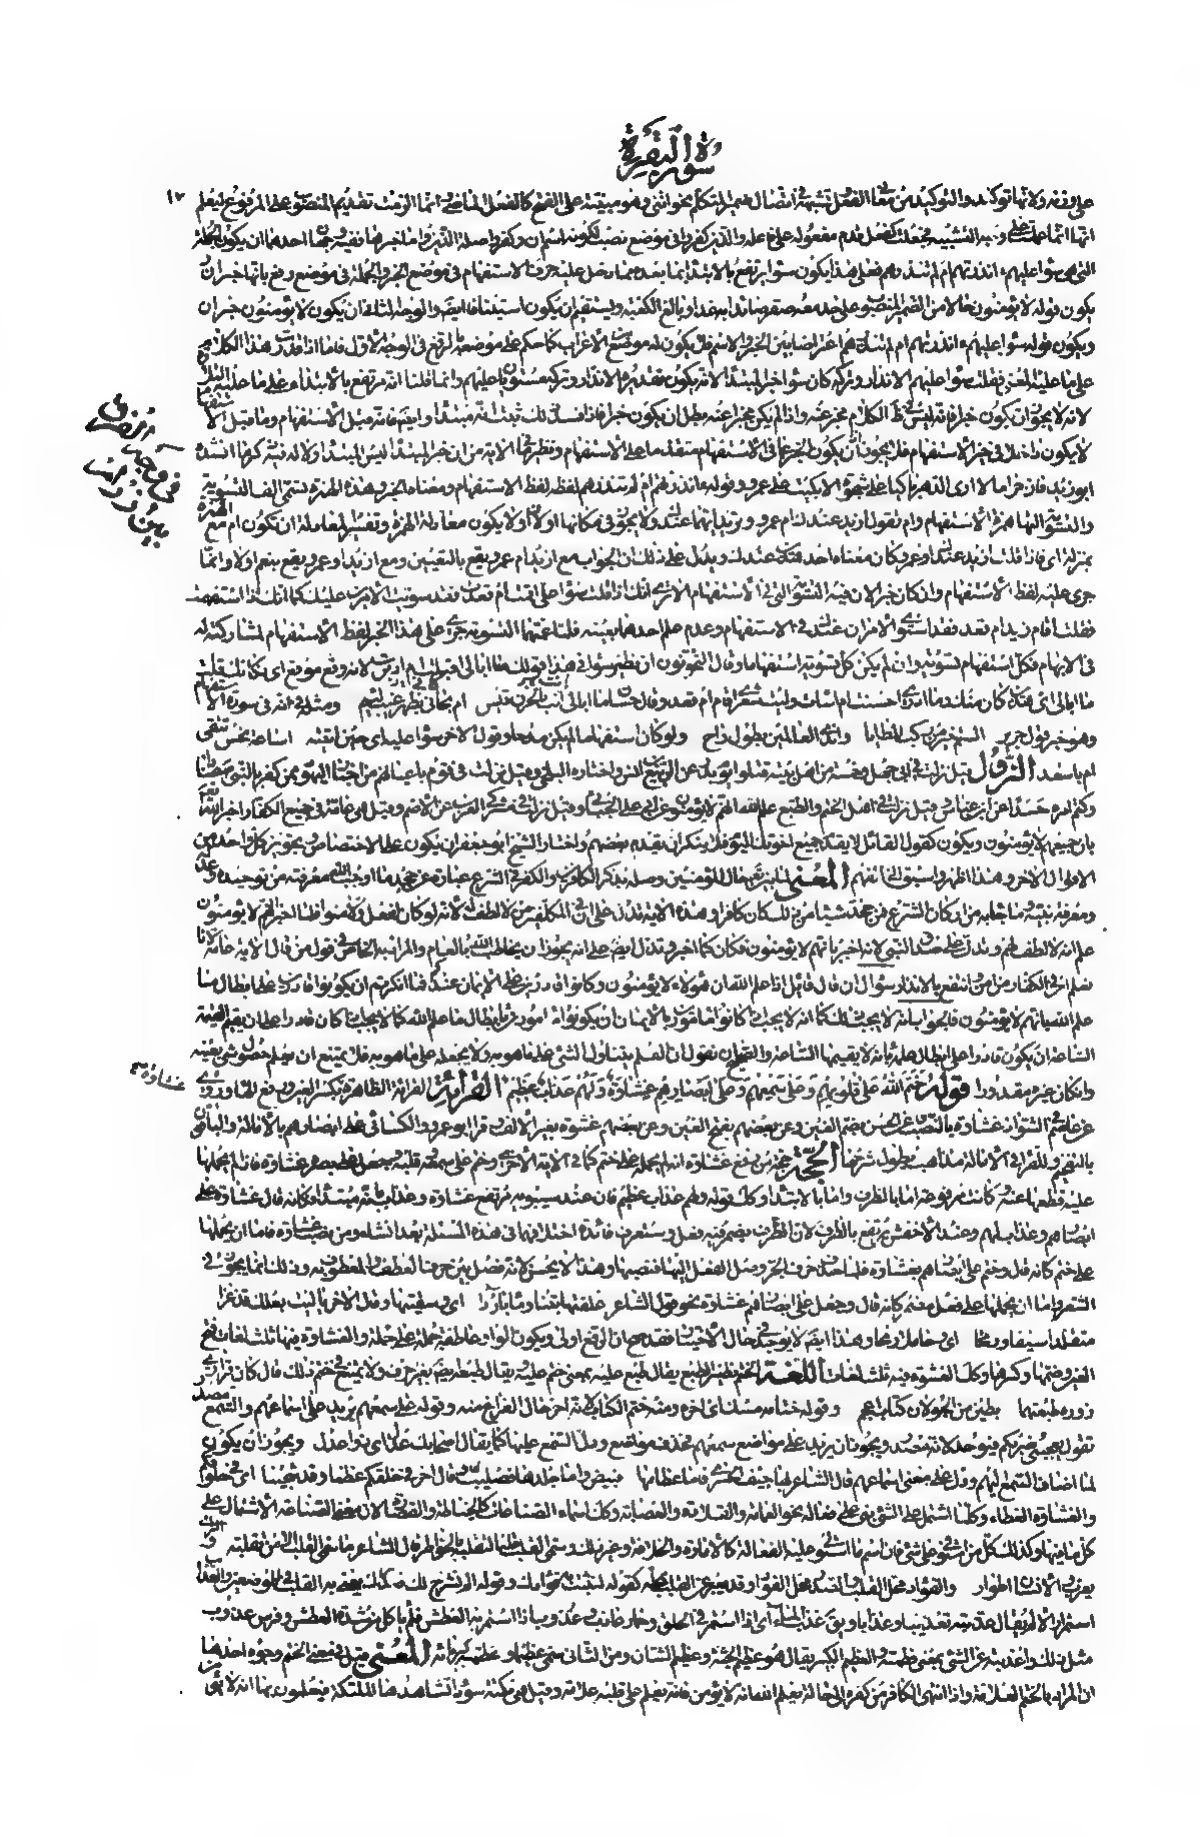 سورة البقرة
١٧
على وزنه ولانها توكيد والتوكيد من معاني الفعل وتشبهه في اتصال ضمير المتكلم نحو انني وهو مبنية على الفتح كالفعل الماضي وانما الزمت تقديم المنصوب على المرفوع ليعلم
انها انما عملت على وجه التشبيه فجعلت كفعل قدم مفعوله على فاعله والذين كفروا في موضع نصب لكونه اسم ان وكفروا صلة الذين واما خبرها ففيه وجهان احدهما ان يكون الجملة
التي هي سواء عليهم ءانذرتهم ام لم تنذرهم فعلى هذا يكون سواء يرتفع بالابتداء وما بعده مما دخل عليه حرف الاستفهام في موضع الخبر والجملة في موضع رفع بانها خبر ان
يكون قوله لا يؤمنون حالا من الضمير المنصوب على حد معه صقر صائدا به غدا وبالغ الكعبة ويستقيم ان يكون استينافا ايضا والوجه الثاني ان يكون لا يؤمنون خبر ان
ويكون قوله سواء عليهم ءانذرتهم ام لم تنذرهم اعتراضا بين الخبر والاسم فلا يكون له موضع من الاعراب كما حكم على موضعه بالرفع في الوجه الاول فاما اذا قدرت هذا الكلام
على ما عليه المعنى فقلت سواء عليهم الانذار وتركه كان سواء خبر المبتدأ لانه يكون تقديره الانذار وتركه مستويان عليهم وانما قلنا انه مرتفع بالابتداء على ما عليه التلاوة
لانه لا يجوز ان يكون خبرا فانه ليس في ظاهر الكلام مخبر عنه واذا لم يكن مخبر عنه بطل ان يكون خبرا فاذا فسد ذلك ثبت انه مبتدأ وايضا فانه قبل الاستفهام وما قبل الاستفهام
لا يكون داخلا في حيز الاستفهام فلا يجوز ان يكون الخبر عما في الاستفهام متقدما على الاستفهام ونظير ما في الاية من ان خبر المبتدأ ليس المبتدأ ولا له فيه ذكر ما انشده
ابو زيد فان حراما لا ارى الدهر باكيا على شجوه الا بكيت على عمرو وقوله ءانذرتهم ام لم تنذرهم لفظه لفظ الاستفهام ومعناه الخبر وهذه الهمزة تسمى الف التسوية
والتسوية آلتها همزة الاستفهام وام تقول ازيد عندك ام عمرو تريد ايهما عندك ولا يجوز في مكانها او لان او لا يكون معادلة الهمزة وتفسير المعادلة ان تكون ام مع الهمزة
بمنزلة اي فاذا قلت ازيد عندك او عمرو كان معناه احد هذين عندك ويدل على ذلك ان الجواب مع ازيد ام عمرو يقع بالتعيين ومع ازيد او عمرو يقع بنعم او لا وانما
جرى عليه لفظ الاستفهام وان كان خبرا لان فيه التسوية التي في الاستفهام الا ترى انك اذا قلت سواء علي اقمت ام قعدت فقد سويت الامرين عليك كما انك اذا استفهمت
فقلت اقام زيد ام قعد فقد استوى الامران عندك في الاستفهام وعدم علم احدهما بعينه فلما عمتهما التسوية جرى على هذا الخبر لفظ الاستفهام لمشاركته له
في الابهام فكل استفهام تسوية وان لم يكن كل تسوية استفهاما وقال النحويون ان نظير سواء في هذا قولك ما ابالي اقبلت ام ادبرت لانه وقع موقع اي فكانك قلت
ما ابالي اي هذين كان منك وما ادري احسنت ام اسأت وليت شعري اقام ام قعد وقال حسان ما ابالي انب بالحزن تيس ام لحاني بظهر غيب لئيم ومثله في انه في صورة الاستفهام
وهو خبر قول جرير الستم خير من ركب المطايا واندى العالمين بطون راح ولو كان استفهاما لم يكن مدحا وقول الاخر سواء عليه اي حين اتيته اساعة نحس تتقى
ام باسعد النزول قيل نزلت في ابي جهل وخمسة من اهل بيته قتلوا يوم بدر عن الربيع بن انس واختاره البلخي وقيل نزلت في قوم باعيانهم من احبار اليهود ممن كفر بالنبي ص عنادا
وكتم امره حسدا عن ابن عباس وقيل نزلت في اهل الختم والطبع علم الله انهم لا يؤمنون عن ابي علي الجبائي وقيل نزلت في مشركي العرب عن الاصم وقيل هي عامة في جميع الكفار اخبر الله تعالى
بان جميعهم لا يؤمنون ويكون كقول القائل لا يقدم جميع اخوتك اليوم فلا ينكر ان يقدم بعضهم واختار الشيخ ابو جعفر ان يكون على الاختصاص وتجويز كل واحد من
الاقوال الاخر وهذا اظهر واسبق الى الفهم المعنى لما بين تعالى حال المؤمنين وصله بذكر الكافرين والكفر في الشرع عبارة عن جحد ما اوجب الله معرفته من توحيده وعدله
ومعرفة نبيه وما جاء به من اركان الشرع فمن جحد شيئا من ذلك كان كافرا وهذه الاية تدل على ان في المكلفين من لا لطف له لانه لو كان لفعل ولآمنوا فلما اخبر انهم لا يؤمنون
علم انه لا لطف لهم وتدل على صدق النبي لانه اخبر بانهم لا يؤمنون فكان كما اخبر وتدل ايضا على انه يجوز ان يخاطب الله بالعام والمراد به الخاص في قول من قال الاية عامة لانا
نعلم ان في الكفار من آمن وانتفع بالانذار سؤال ان قال قائل اذا علم الله بان هؤلاء لا يؤمنون وكانوا قادرين على الايمان عندكم فما انكرتم ان يكونوا قادرين على ابطال ما
علم الله بانهم لا يؤمنون فالجواب انه لا يجب ذلك كما انه لا يجب اذا كانوا مأمورين بالايمان ان يكونوا مأمورين بابطال ما علم الله كما لا يجب اذا كان قادرا على ان يقيم القيمة
الساعة ان يكون قادرا على ابطال علمه بانه لا يقيمها الساعة والصحيح ان نقول ان العلم يتناول الشيء على ما هو به ولا يجعله على ما هو به فلا يمتنع ان يعلم حصول شيء بعينه
وان كان غيره مقدورا قوله ختم الله على قلوبهم وعلى سمعهم وعلى ابصارهم غشاوة ولهم عذاب عظيم القراءة القراءة الظاهرة بكسر الغين ورفع الهاء وروي
عن عاصم في الشواذ غشاوة بالنصب وعن الحسن بضم الغين وعن بعضهم بفتح الغين وعن بعضهم غشوة بغير الالف وقرأ ابو عمرو والكسائي على ابصارهم بالامالة والباقون
بالتفخيم وللقراء في الامالة مذاهب يطول شرحها الحجة حجة من رفع غشاوة انه لم يحمله على ختم كما في الاية الاخرى وختم على سمعه وقلبه وجعل على بصره غشاوة فاذا لم يحملها
عليه قطعها عنه وكانت مرفوعة اما بالظرف واما بالابتداء وكذلك قوله ولهم عذاب عظيم فان عند سيبويه ترتفع غشاوة وعذاب بانه مبتدأ فكانه قال غشاوة على
ابصارهم وعذاب لهم وعند الاخفش يرتفع بالظرف لان الظرف يضمر فيه فعل وستعرف فائدة اختلافهما في هذه المسئلة بعد انشاء الله ومن نصب غشاوة فاما ان يحملها
على ختم كانه قال وختم على ابصارهم بغشاوة فلما حذف حرف الجر وصل الفعل اليها فنصبها وهذا لا يحسن لانه فصل بين حرف العطف والمعطوف به وذلك انما يجوز في
الشعر واما ان يحملها على فعل مضمر كانه قال وجعل على ابصارهم غشاوة نحو قول الشاعر علفتها تبنا وماء باردا اي وسقيتها وقول الاخر يا ليت بعلك قد غزا
متقلدا سيفا ورمحا اي وحاملا رمحا وهذا ايضا لا يوجد في حال الاختيار فقد صح ان الرفع اولى ويكون الواو عاطفة جملة على جملة والغشاوة فيها ثلث لغات فتح
الغين وضمها وكسرها وكذلك الغشوة فيه ثلث لغات اللغة الختم نظير الطبع يقال طبع عليه بمعنى ختم عليه ويقال طبعه ايضا بغير حرف ولا يمتنع في ختم ذلك قال كان قرادي
زوره طبعتهما بطين من الجولان كتاب اعجم وقوله ختامه مسك اي آخره ومنه ختم الكتاب لانه اخر حال الفراغ منه وقوله على سمعهم يريد على اسماعهم والسمع مصدر
تقول يعجبني ضربكم فيوحد لانه مصدر ويجوز ان يريد على مواضع سمعهم فحذف مواضع ودل السمع عليها كما يقال اصحابك عدل اي ذوا عدل ويجوز ان يكون
لما اضاف السمع اليهم دل على معنى اسماعهم قال الشاعر بها جيف الحسرى فاما عظامها فبيض واما جلدها فصليب وقال اخر في حلقكم عظم وقد شجينا اي في حلوقكم
والغشاوة الغطاء وكلما اشتمل على الشيء بني على فعالة نحو العمامة والقلادة والعصابة وكذلك اسماء الصناعات كالخياطة والقصارة لان معنى الصناعة الاشتمال على
كل ما فيها وكذلك كل من استولى على شيء فاسم ما استولى عليه الفعالة كالامارة والخلافة وغير ذلك وسمي القلب قلبا لتقلبه بالخواطر قال الشاعر ما سمي القلب الا من تقلبه والرأي
يعزب والانسان اطوار والفؤاد محل القلب والصدر محل الفؤاد وقد يعبر عن القلب بمحله كقوله لنثبت به فؤادك وقوله الم نشرح لك صدرك يعني به القلب في الموضعين والعذاب
استمرار الالم يقال عذبته تعذيبا وعذابا ويقال عذب الماء اي اذا استمر في الحلق وحمار عاذب وعذوب اذا استمر به العطش فلم يأكل من شدة العطش وفرس عذوب
مثل ذلك واعذبته عن الشيء بمعنى فطمته والعظيم الكبير يقال هو عظيم الجثة وعظيم الشأن ومن الشأن سمي عظيما وعظمة كبرياؤه المعنى قيل في معنى الختم وجوه احدها
ان المراد بالختم العلامة واذا انتهى الكافر من كفره الى حالة يعلم الله انه لا يؤمن فانه يعلم على قلبه علامة وقيل هي نكتة سوداء تشاهدها الملئكة فيعلمون بها انه لا يؤمن
غشاوة